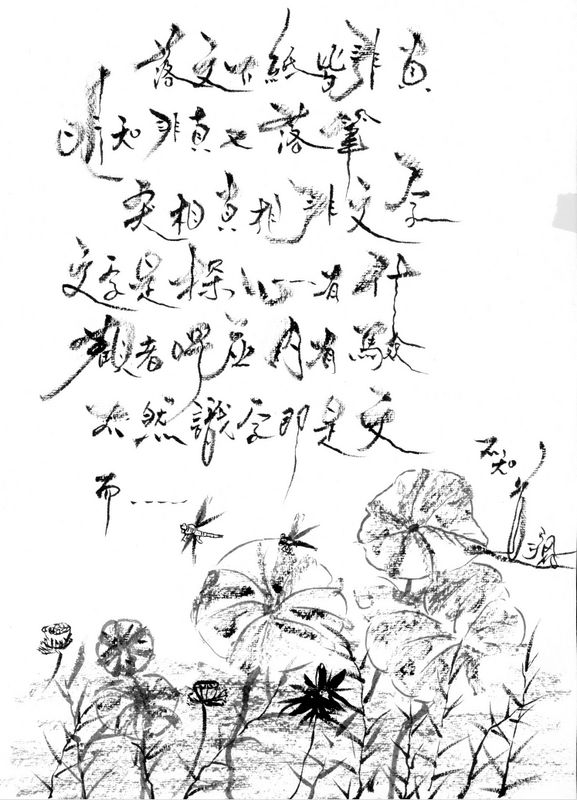 落文下紙皆非真
明知非真也落筆
實相真相非文字
文字是探心有什
觀者呼應內有駭
不然識字即是文
而……
不知